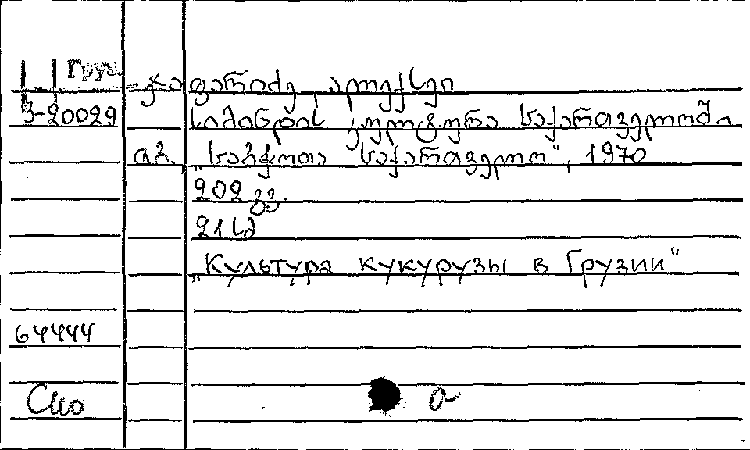 Груз
ჯაფარიძე ალექსეი
3-20029 სიმინდის კულტურა საქართველოში
თბ. "საბჭოთა საქართველო", 1970
202 გვ.
21 სმ
"Культура кукурузы в Грузии"
64444
а